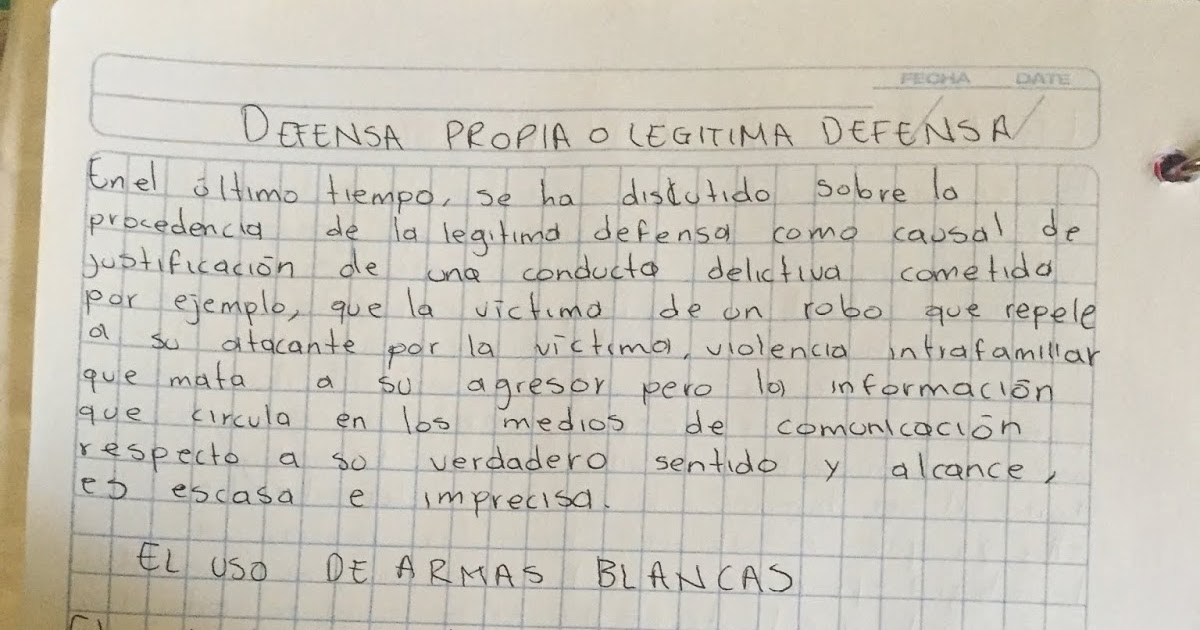 FECHA DATE
DEFENSA PROPIA O LEGITIMA DEFENSA
En el último tiempo, se ha discutido sobre la
procedencia de la legitima defensa como causal de
justificación de una conducta delictiva cometida
por ejemplo, que la víctima de un robo que repele
a su atacante por la víctima, violencia intrafamiliar
que mata a su agresor pero la información
que circula en los medios de comunicación
respecto a su verdadero sentido y alcance,
es escasa e imprecisa.
EL USO DE ARMAS BLANCAS